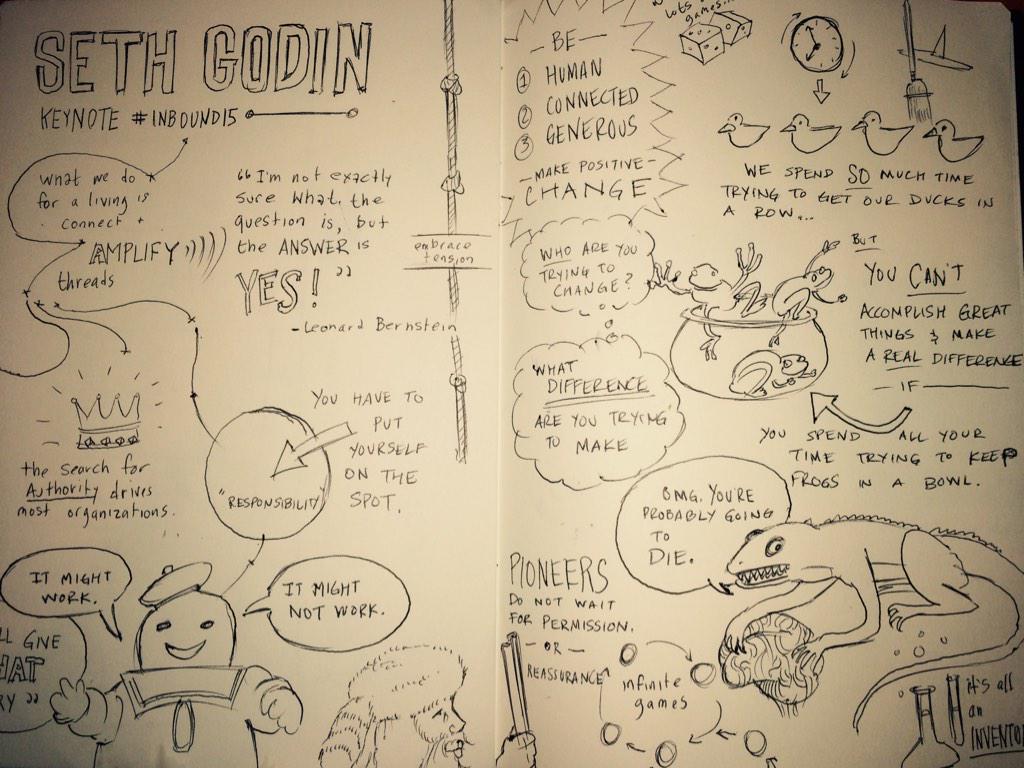 SETH GODIN
KEYNOTE #INBOUND15
what we do
for a living is
connect +
AMPLIFY
threads
"I'm not exactly
sure what the
question is, but
the ANSWER is
YES!"
-Leonard Bernstein
embrace
tension
the search for
Authority drives
most organizations.
YOU HAVE TO
PUT
YOURSELF
ON THE
SPOT.
"RESPONSIBILITY"
IT MIGHT
WORK.
IT MIGHT
NOT WORK.
GIVE
"
- BE -
1 HUMAN
2 CONNECTED
3 GENEROUS
- MAKE POSITIVE -
CHANGE
lots
games...
WE SPEND SO MUCH TIME
TRYING TO GET OUR DUCKS IN
A ROW...
WHO ARE YOU
TRYING TO
CHANGE?
WHAT
DIFFERENCE
ARE YOU TRYING
TO MAKE
BUT
YOU CAN'T
ACCOMPLISH GREAT
THINGS & MAKE
A REAL DIFFERENCE
- IF -
YOU SPEND ALL YOUR
TIME TRYING TO KEEP
FROGS IN A BOWL.
OMG. YOU'RE
PROBABLY GOING
TO
DIE.
PIONEERS
DO NOT WAIT
FOR PERMISSION.
- OR -
REASSURANCE
infinite
games
it's all
an